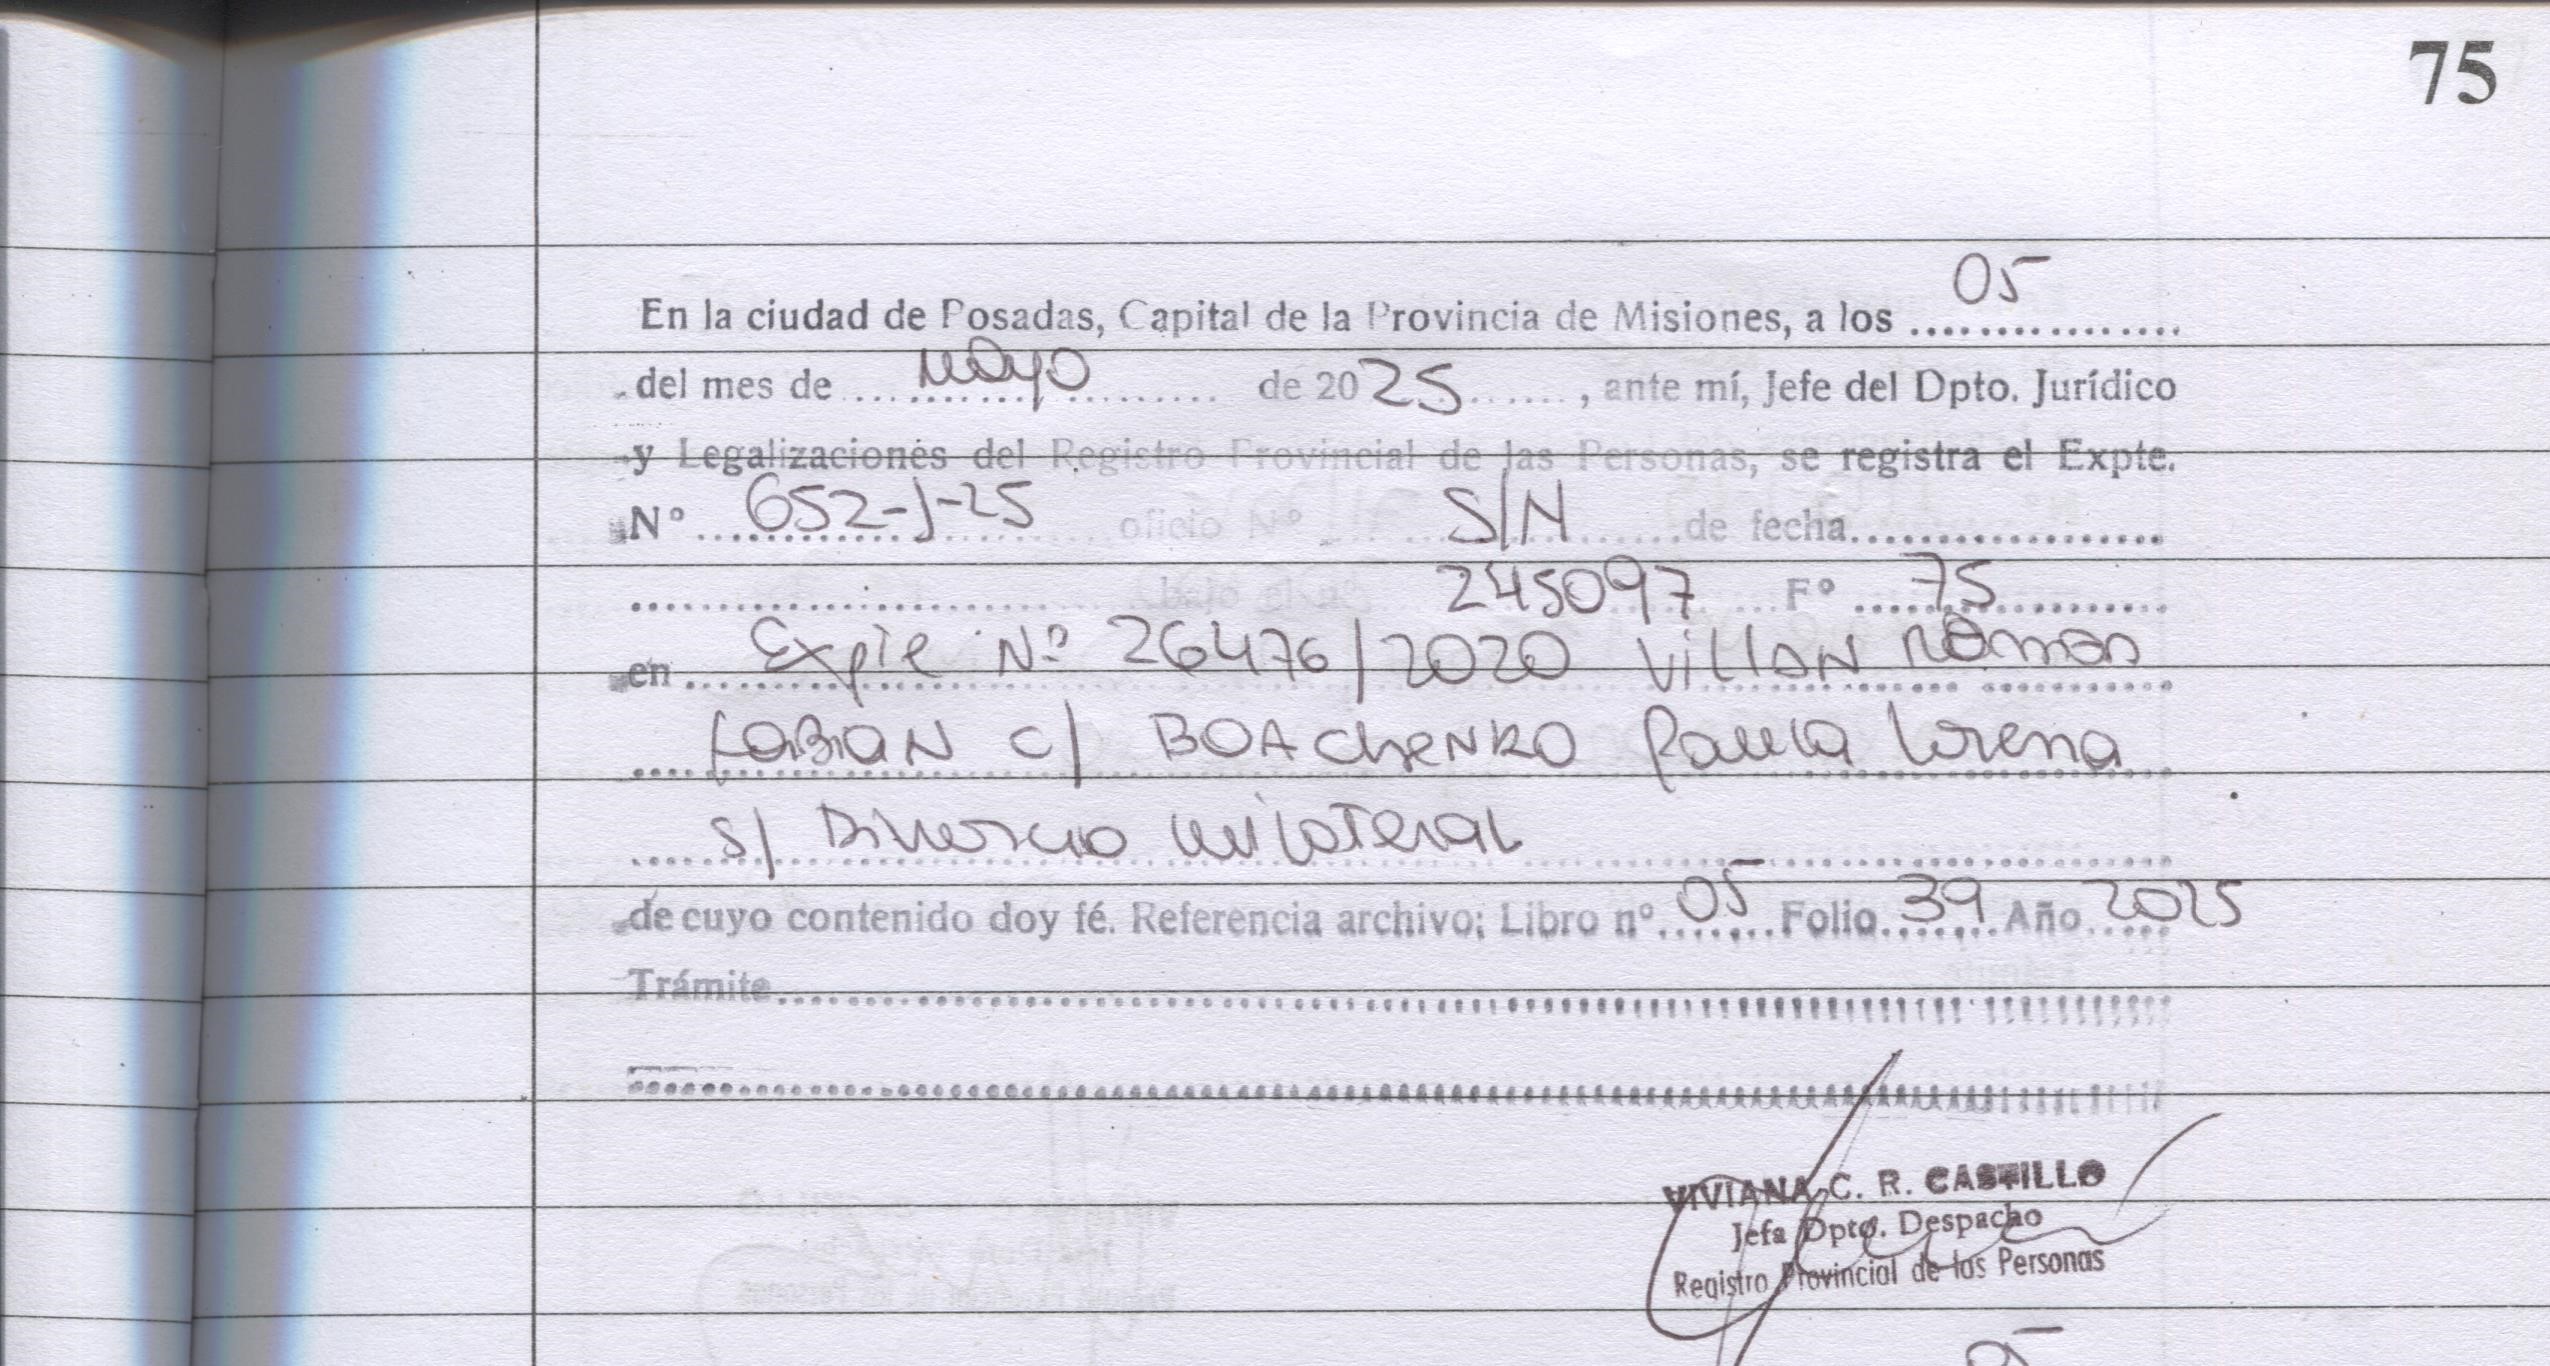 75
En la ciudad de Posadas, Capital de la Provincia de Misiones, a los 05
del mes de mayo de 2025, ante mí, Jefe del Dpto. Jurídico
y Legalizaciones del Registro Provincial de las Personas, se registra el Expte.
Nº 652-J-25 oficio Nº S/N de fecha
bajo el nº 245097 Fº 75
en Expte Nº 26476/2020 VillaN Ramon
FabiaN c/ BOAChENKO Paula Lorena
s/ Divorcio unilateral
de cuyo contenido doy fé. Referencia archivo: Libro nº 05 Folio 39 Año 2025
Trámite
VIVIANA C. R. CASTILLO
Jefa Dpto. Despacho
Registro Provincial de las Personas